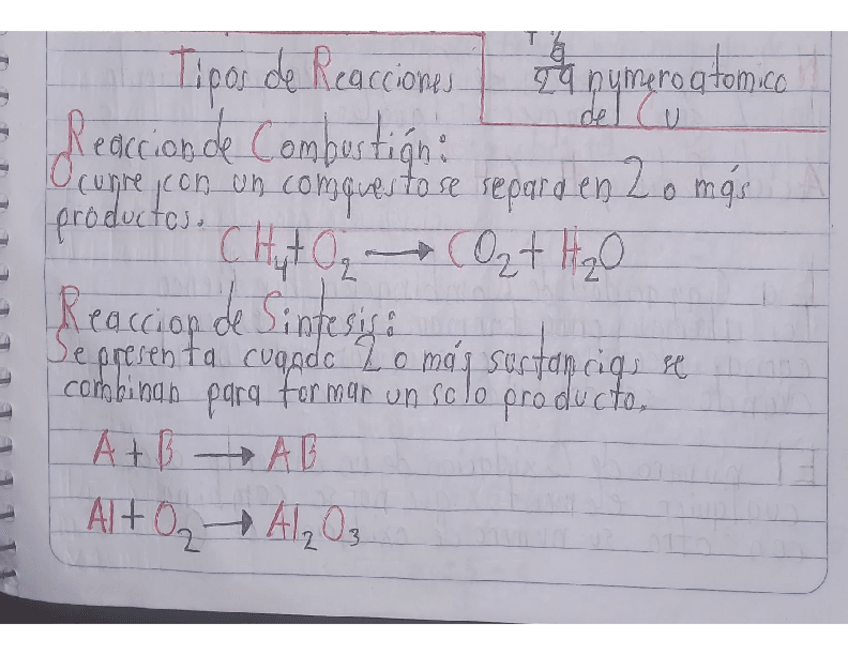 Tipos de Reacciones
29 numero atomico
del Cu
Reaccion de Combustión:
Ocurre con un compuesto se separa en 2 o más
productos.
CH₄ + O₂ → CO₂ + H₂O
Reaccion de Sintesis:
Se presenta cuando 2 o más sustancias se
combinan para formar un solo producto.
A + B → AB
Al + O₂ → Al₂O₃